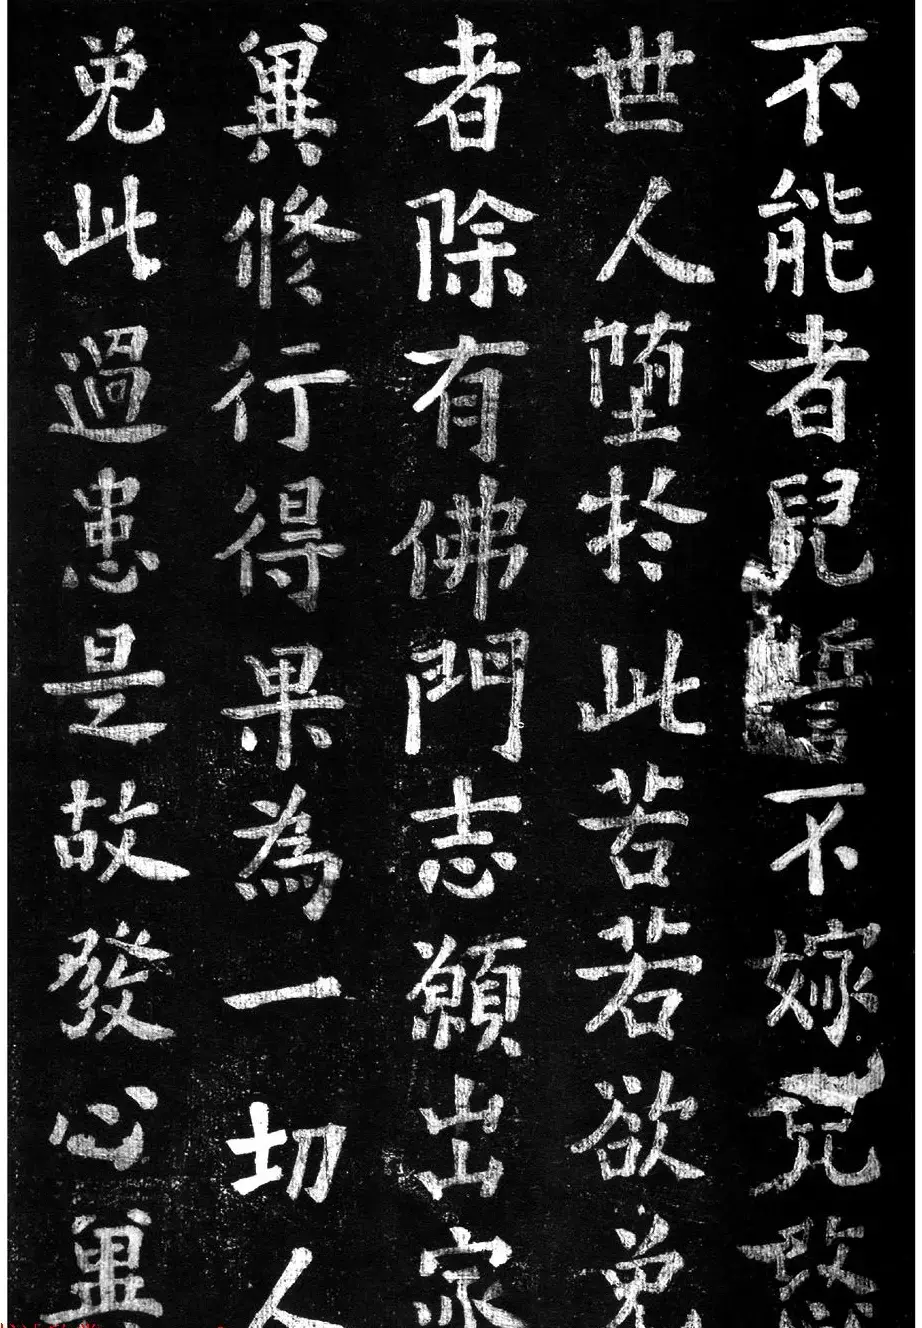 不能者兒誓不嫁兒
世人堕於此苦若欲免
者除有佛門志願出家
兾修行得果為一切人
免此過患是故發心兾